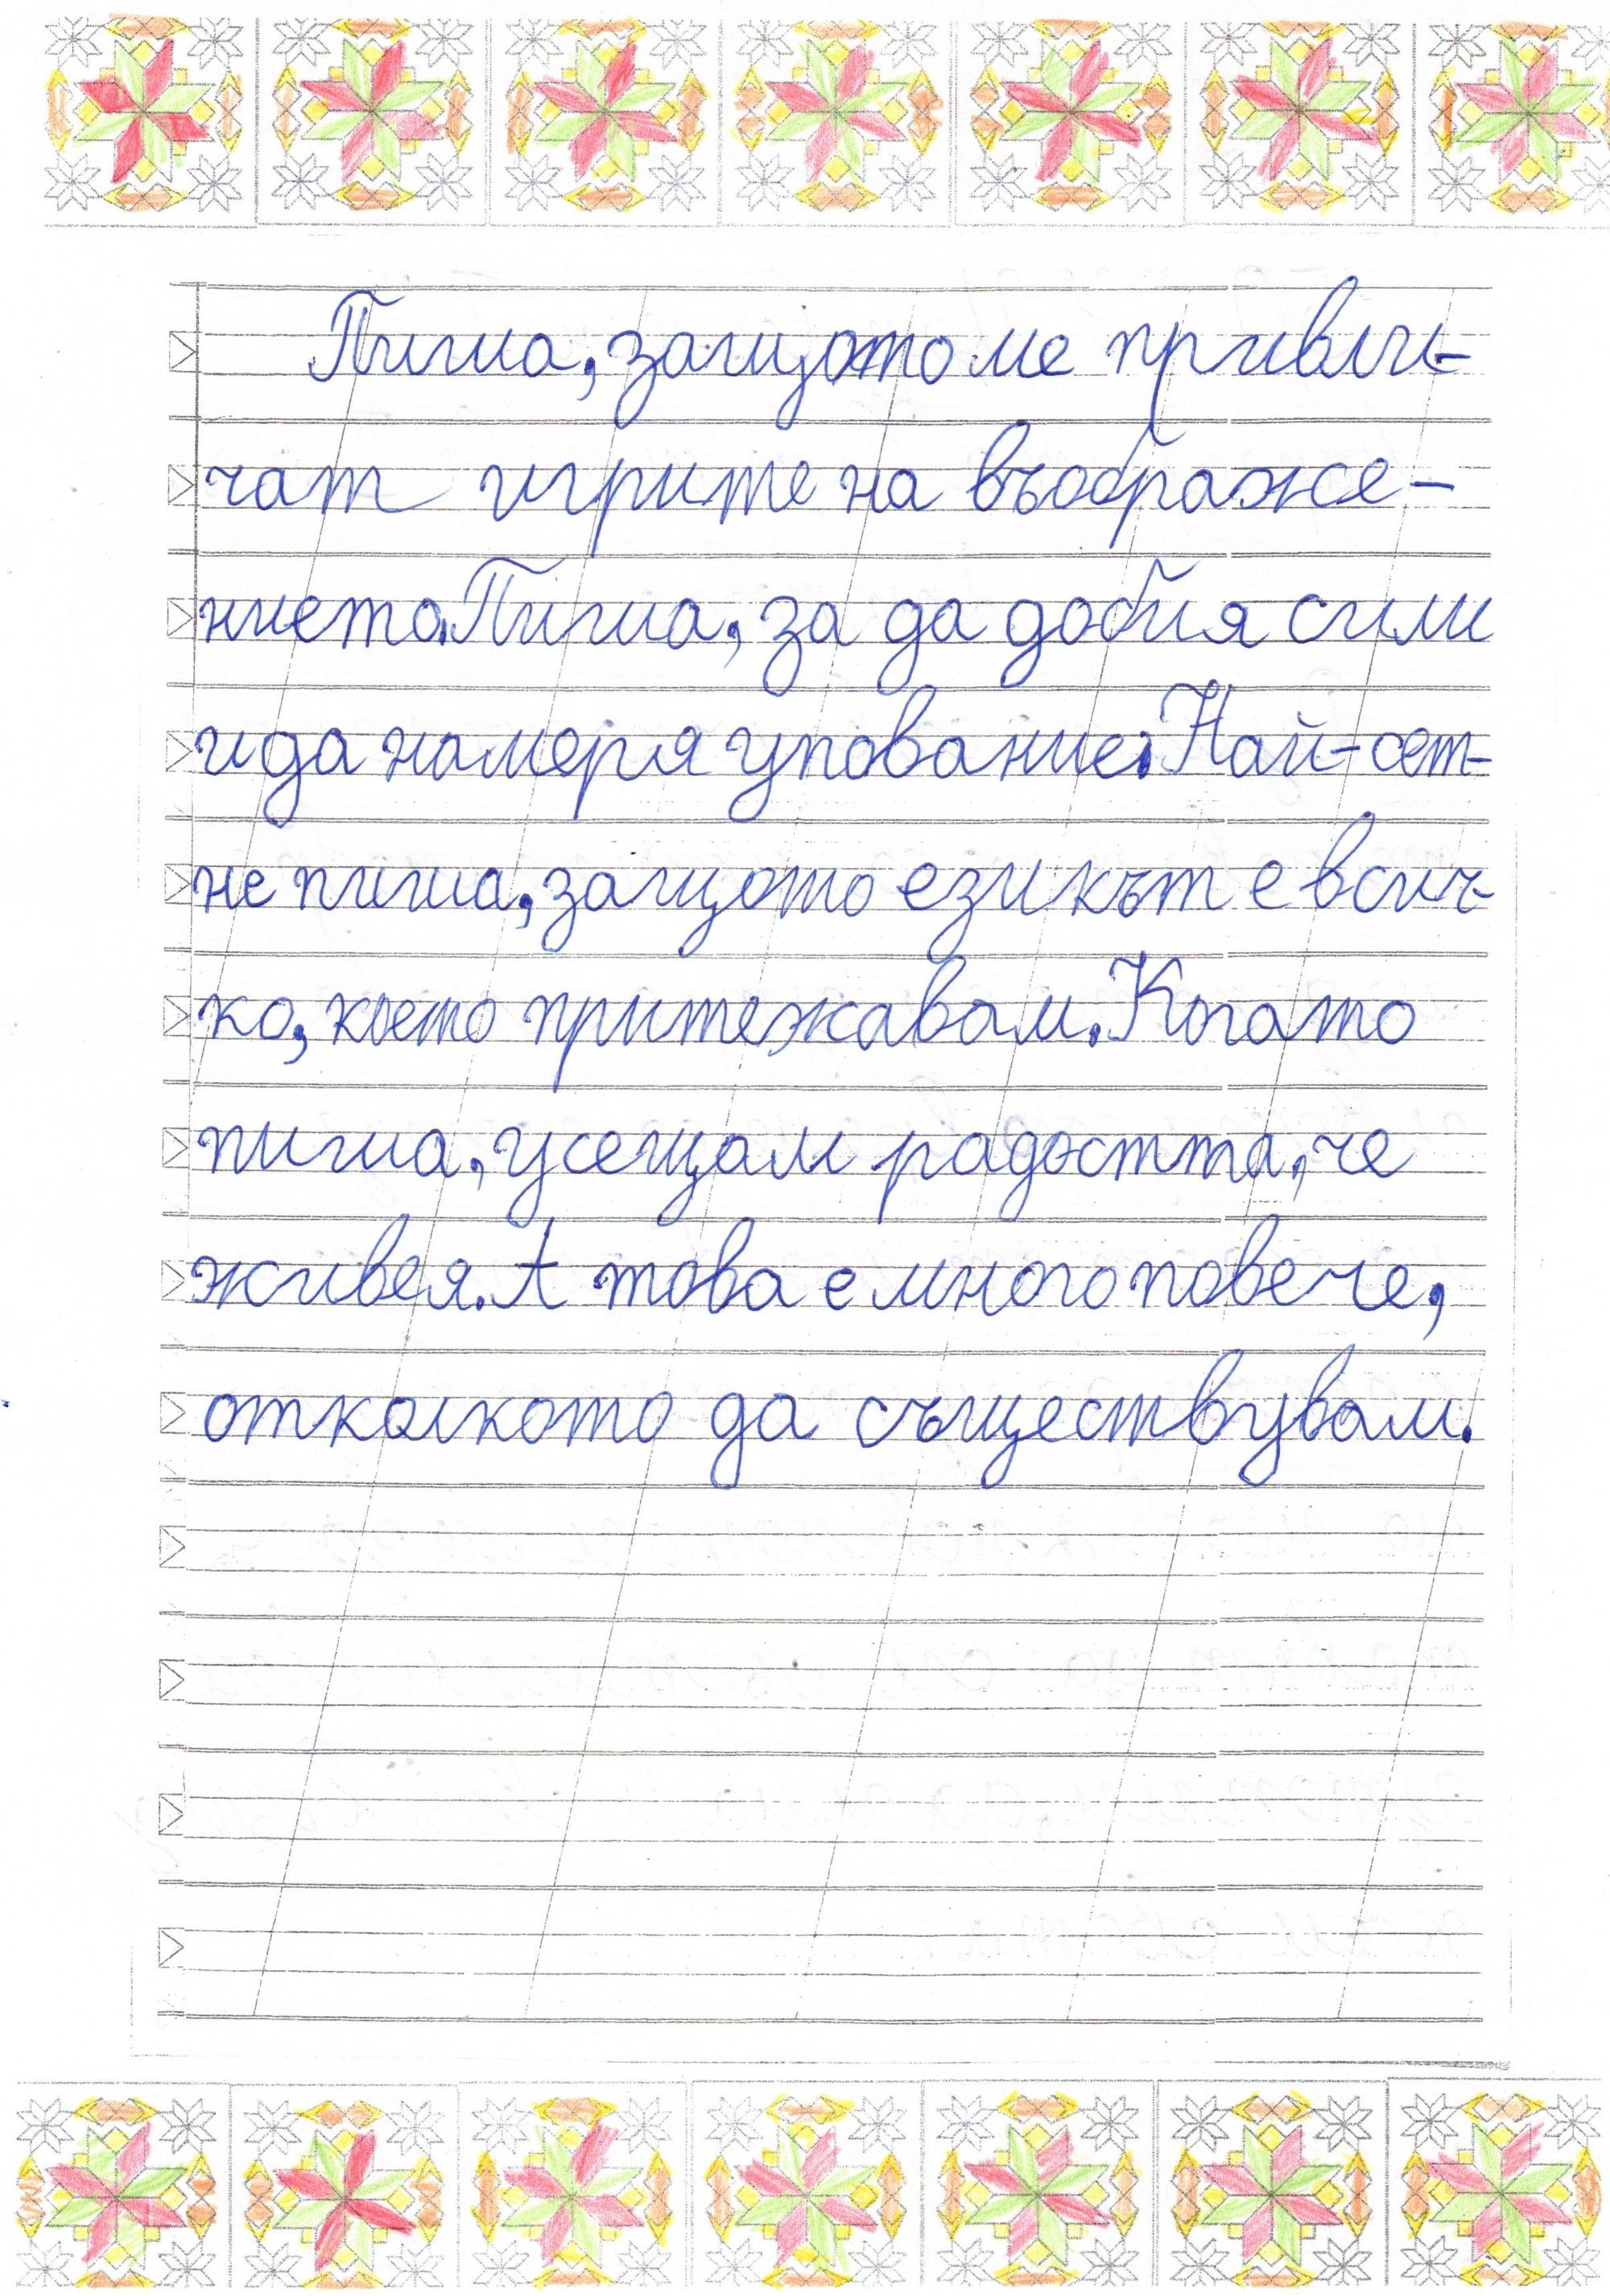 Пиша, защото ме привли-
чат игрите на въображе-
нието. Пиша, за да добия сили
и да намеря упование. Най-сет-
не пиша, защото езикът е всич-
ко, което притежавам. Когато
пиша, усещам радостта, че
живея. А това е много повече,
отколкото да съществувам.